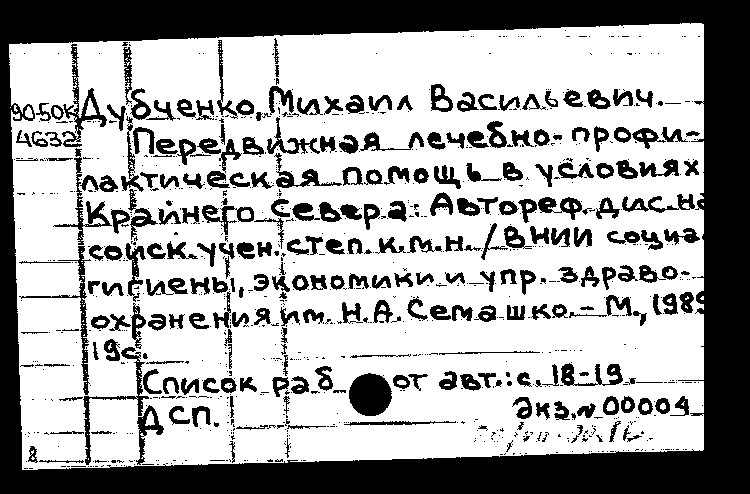 90-50К Дубченко, Михаил Васильевич.
4632 Передвижная лечебно-профи-
лактическая помощь в условиях
Крайнего Севера: Автореф. дис. на
соиск. учен. степ. к.м.н. / ВНИИ социа
гигиены, экономики и упр. здраво-
охранения им. Н.А. Семашко. - М., 1989
19с.
Список работ авт.: с. 18-19.
ДСП. Экз. № 00004